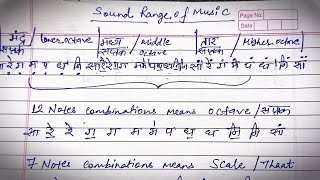 Sound Range of Music
Page No.
Date
मंद्र सप्तक / lower octave मध्य सप्तक / middle octave तार सप्तक / Higher octave
12 Notes combinations means octave / सप्तक
सा रे॒ रे ग॒ ग म म॑ प ध॒ ध नि॒ नि सां
7 Notes combinations means Scale / Thaat